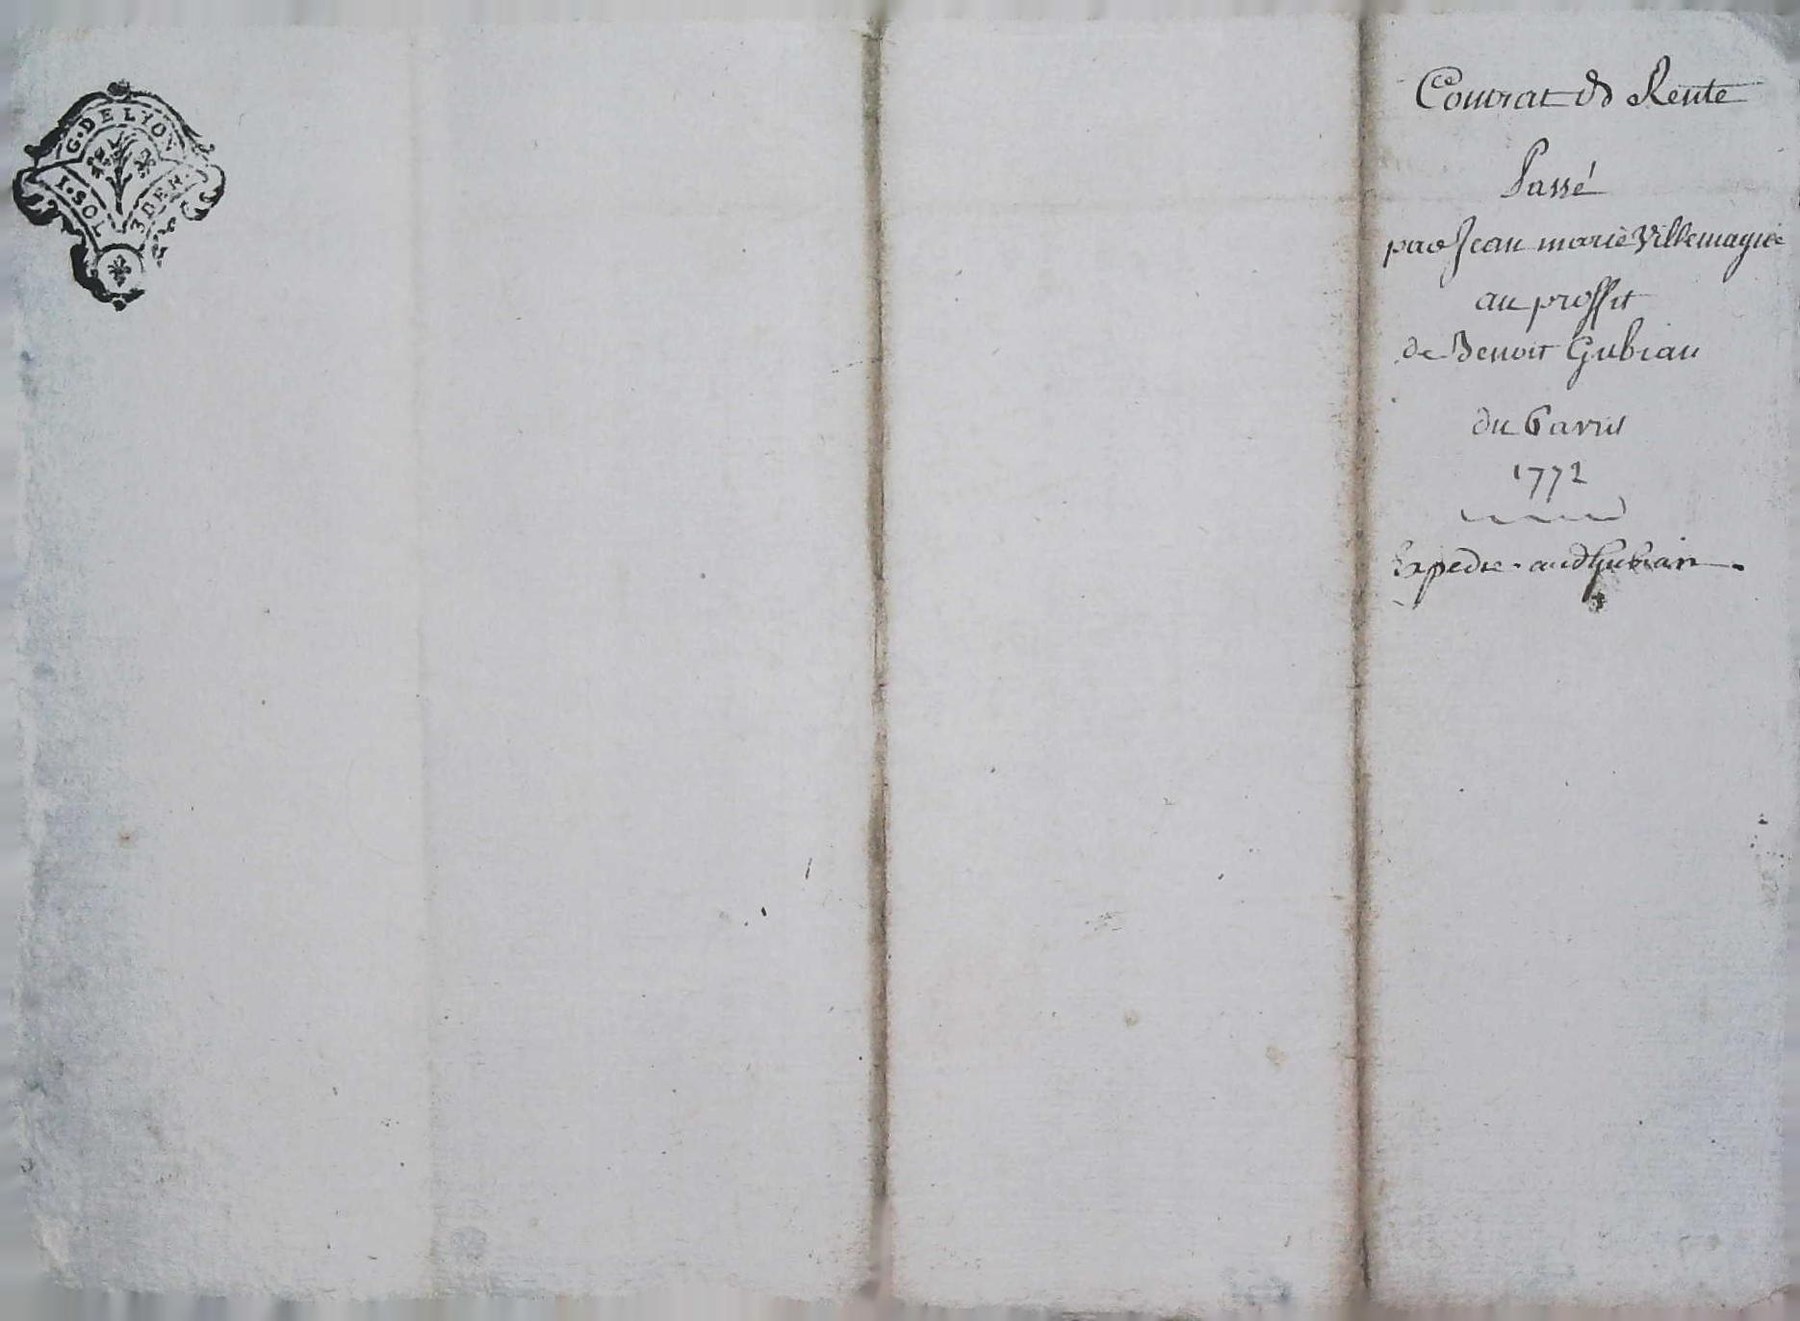 G. DE LYON
1. SOL 3 DEN.
Contrat de Rente
Passé
par Jean marie Villemagne
au proffit
de Benoit Gubian
du 6 avril
1772
Expedie au d Gubian